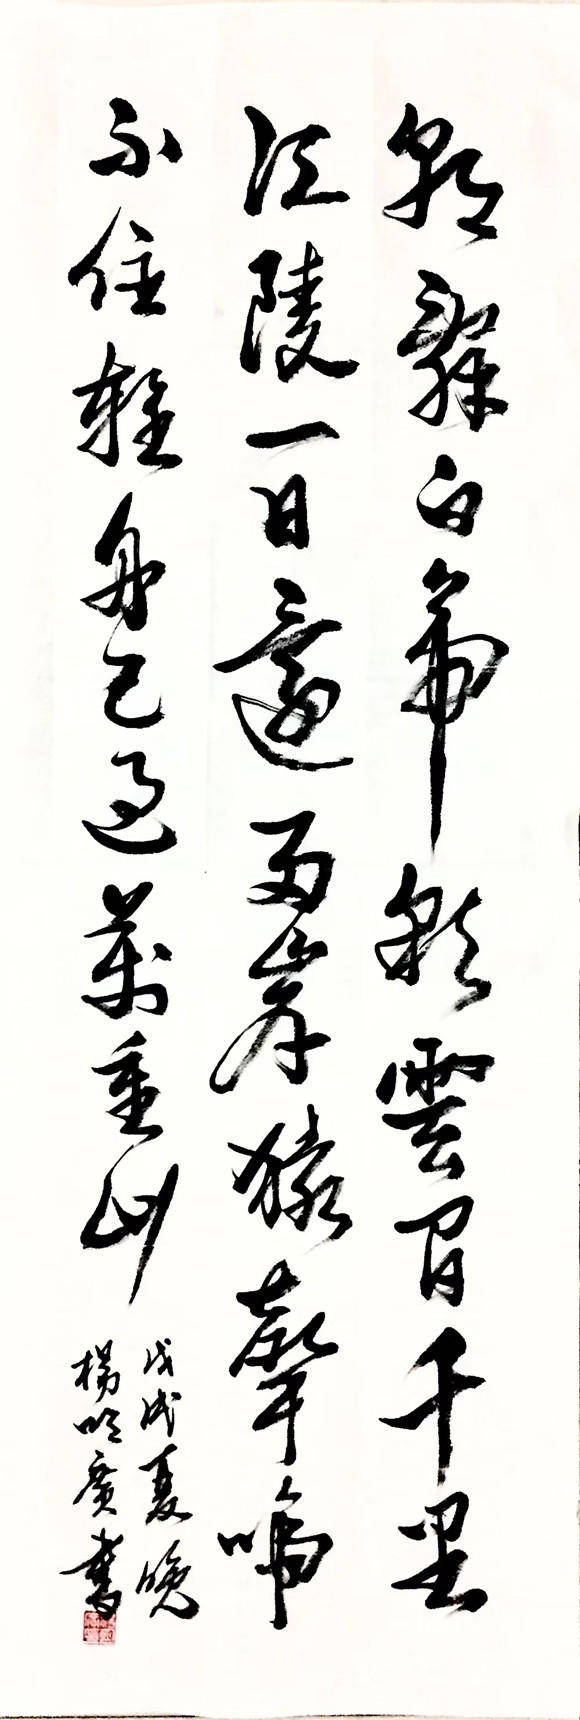 朝辭白帝彩雲間千里
江陵一日還兩岸猿聲啼
不住輕舟已過萬重山
戊戌夏晚
楊廣書